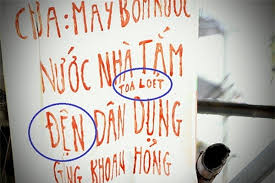 MAY BOM NUOC
NƯỚC NHÀ TẮM
TOA LOET
ĐỆN DÂN DỤNG
KHOAN HỒNG